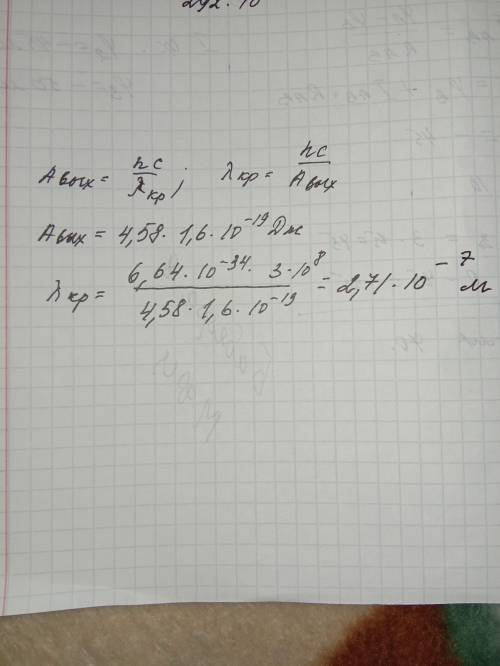 292 · 10
A вых = hc / λ кр ; λ кр = hc / A вых
A вых = 4,58 · 1,6 · 10⁻¹⁹ Дж
λ кр = 6,64 · 10⁻³⁴ · 3 · 10⁸ / 4,58 · 1,6 · 10⁻¹⁹ = 2,71 · 10⁻⁷ м